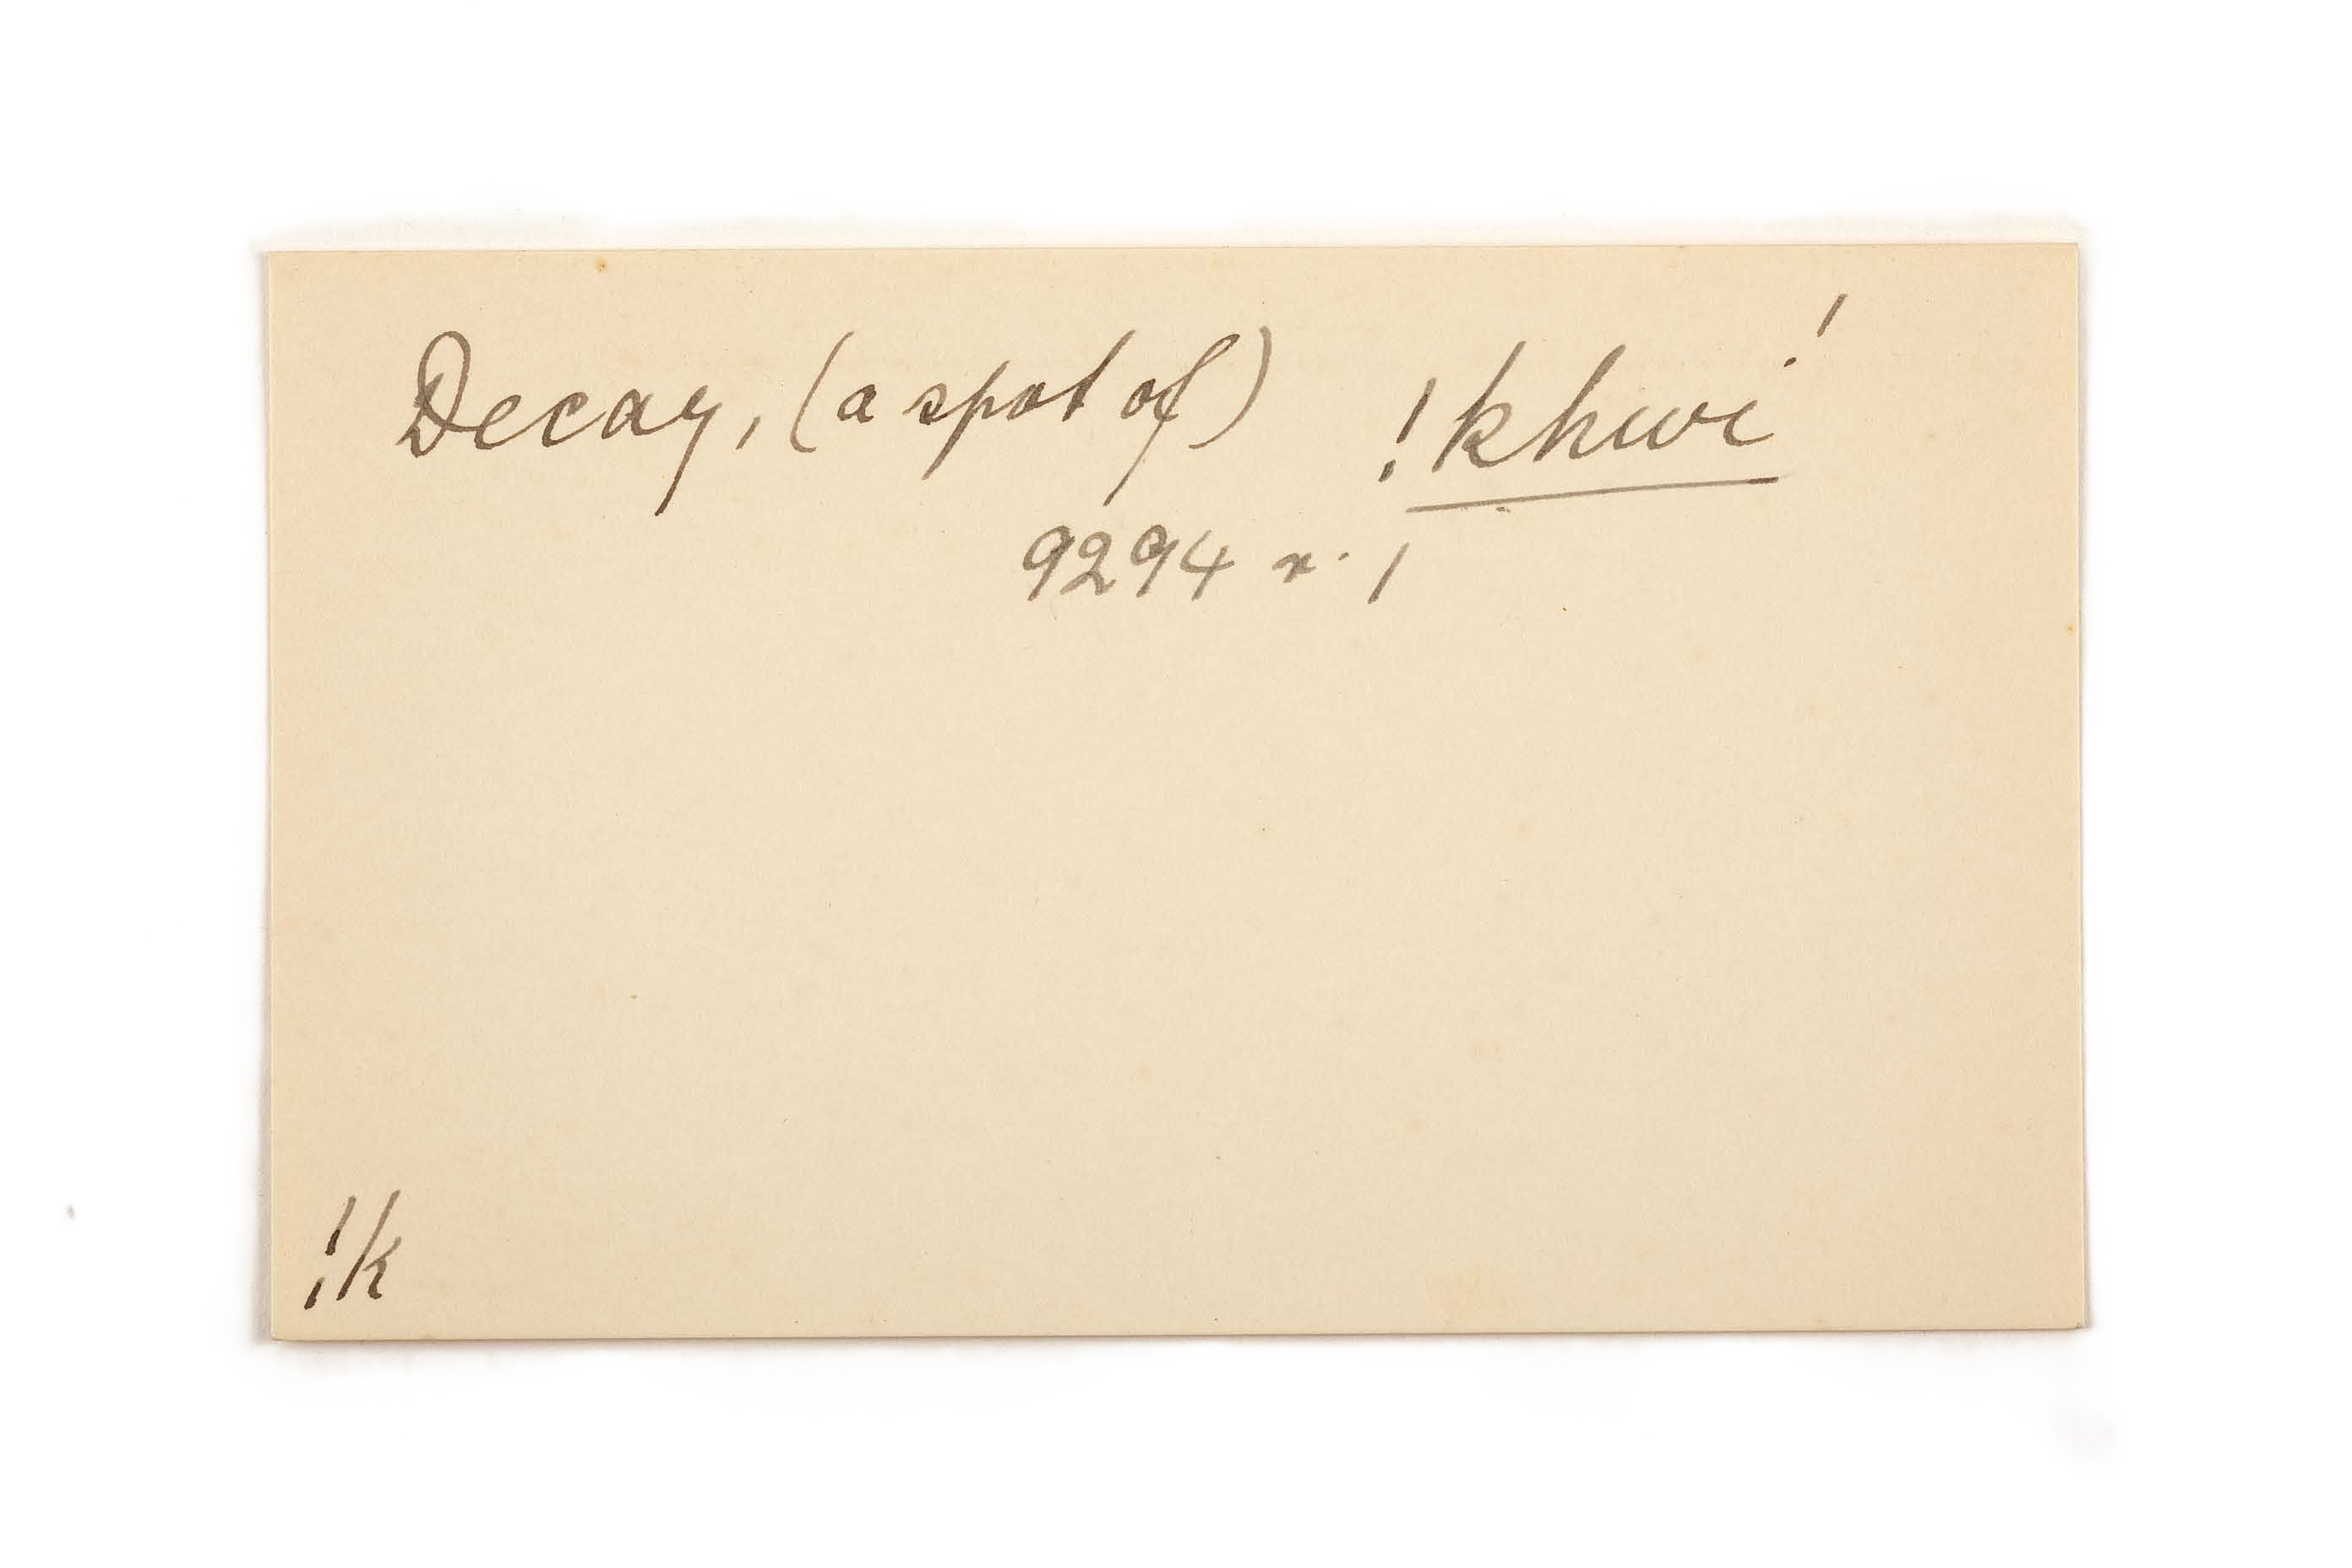 Decay, (a spot of) !khwi'
9294 r. 1
!k